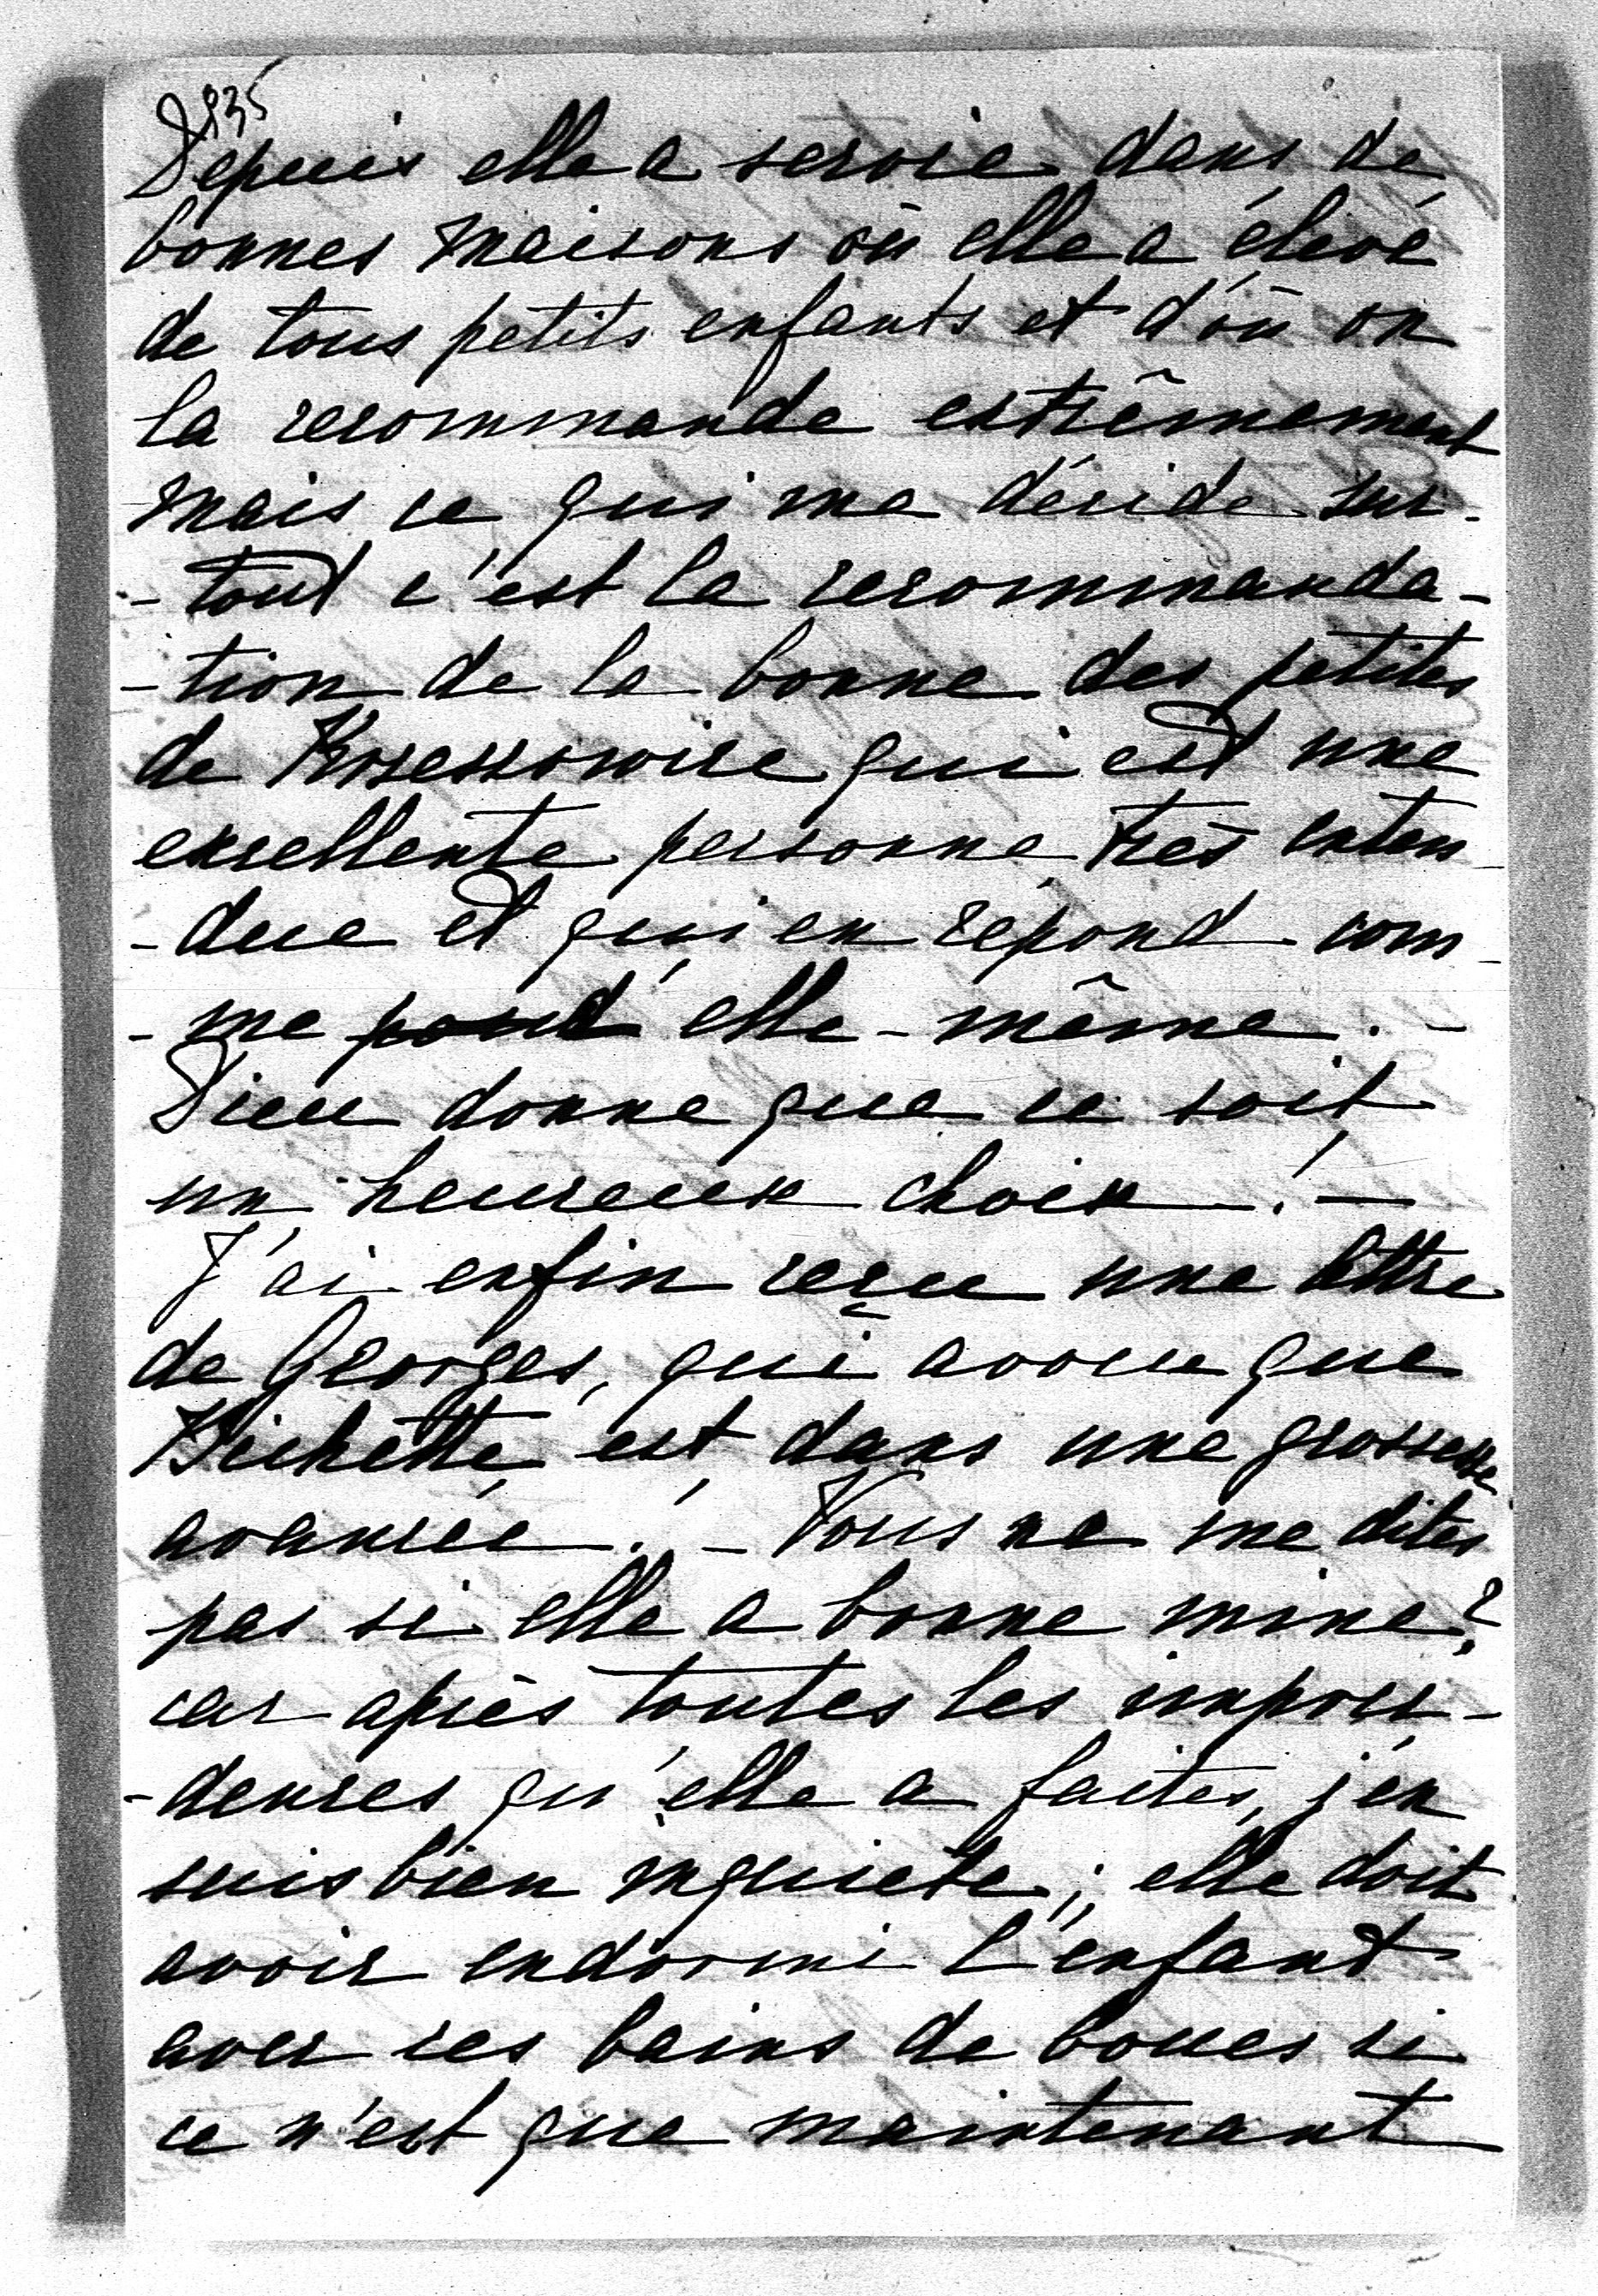 Depuis elle a servie dans de
bonnes maisons où elle a élevé
de tous petits enfants et d'où on
la recommande extrêmement
mais ce qui me décide sur-
-tout c'est la recommanda-
-tion de la bonne des petites
de qui est une
excellente personne, très enten-
-due et qui en répond com-
-me pour elle-même. -
Dieu donne que ce soit
un heureux choix! —
J'ai enfin reçu une lettre
de Georges, qui avoue que
Bichette est dans une grossesse
avancée! - Vous ne me dites
pas si elle a bonne mine?
car après toutes les impru-
-dences qu'elle a faites, j'en
suis bien inquiète; elle doit
avoir endormi l'enfant
avec ces bains de boues si
ce n'est que maintenant